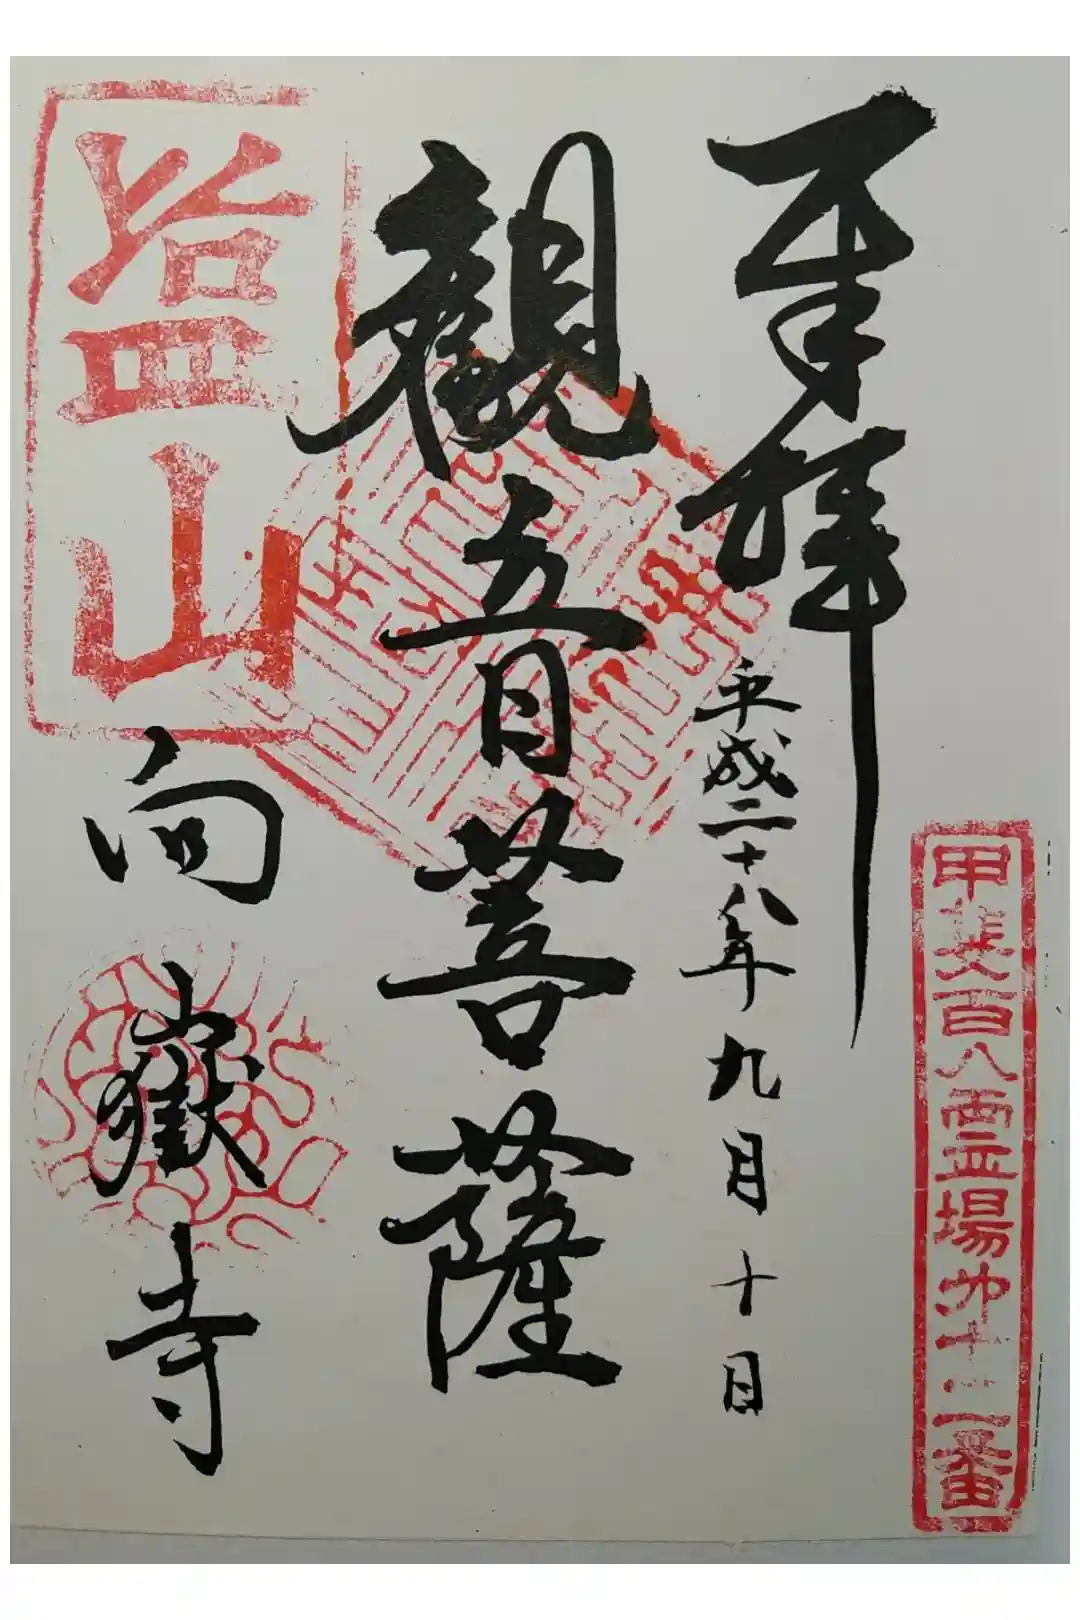 奉拝
平成二十八年九月十日
甲斐百八霊場第十二番
観音菩薩
塩山
向嶽寺